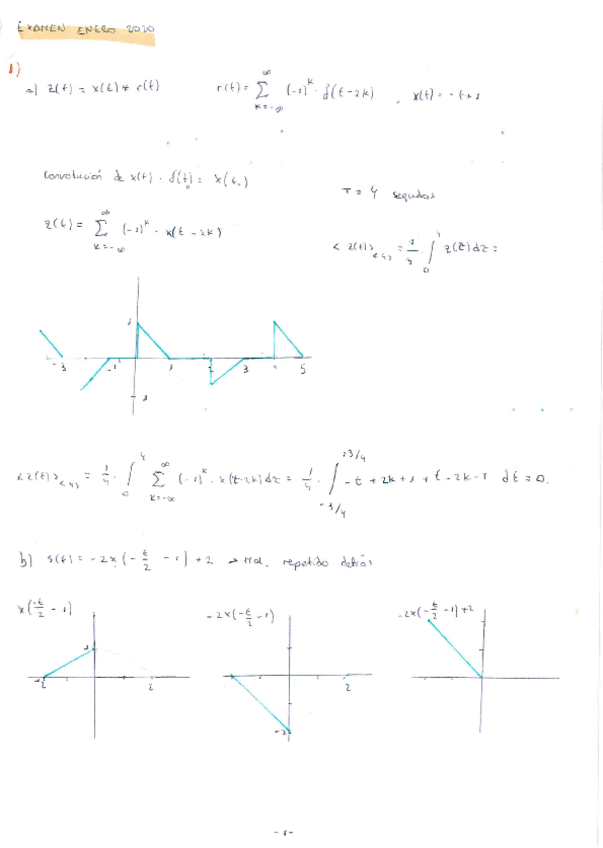 EXAMEN ENERO 2020
1)
a) z(t) = x(t) * r(t) r(t) = ∑ k=-∞ ∞ (-1)^k · δ(t-2k) , x(t) = -t+1
Convolución de x(t) · δ(t) = x(t₀)
T = 4 segundos
z(t) = ∑ k=-∞ ∞ (-1)^k · x(t-2k)
< z(t) ><4> = 1/4 · ∫ 0 4 z(t) dt =
1
-3 -1 1 2 3 5
1
< z(t) ><4> = 1/4 · ∫ 0 4 ∑ k=-∞ ∞ (-1)^k · x(t-2k) dt = 1/4 · ∫ -t + 2k + 1 + t - 2k - 1 dt = 0.
b) s(t) = -2x(-t/2 - 1) + 2 → repetido detrás
x(-t/2 - 1) -2x(-t/2 - 1) -2x(-t/2 - 1) + 2
1
-2 2 2
-2
-1-